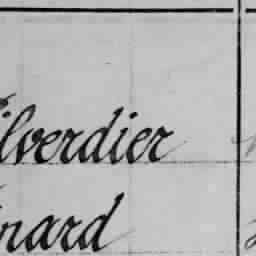 ilverdier
nard